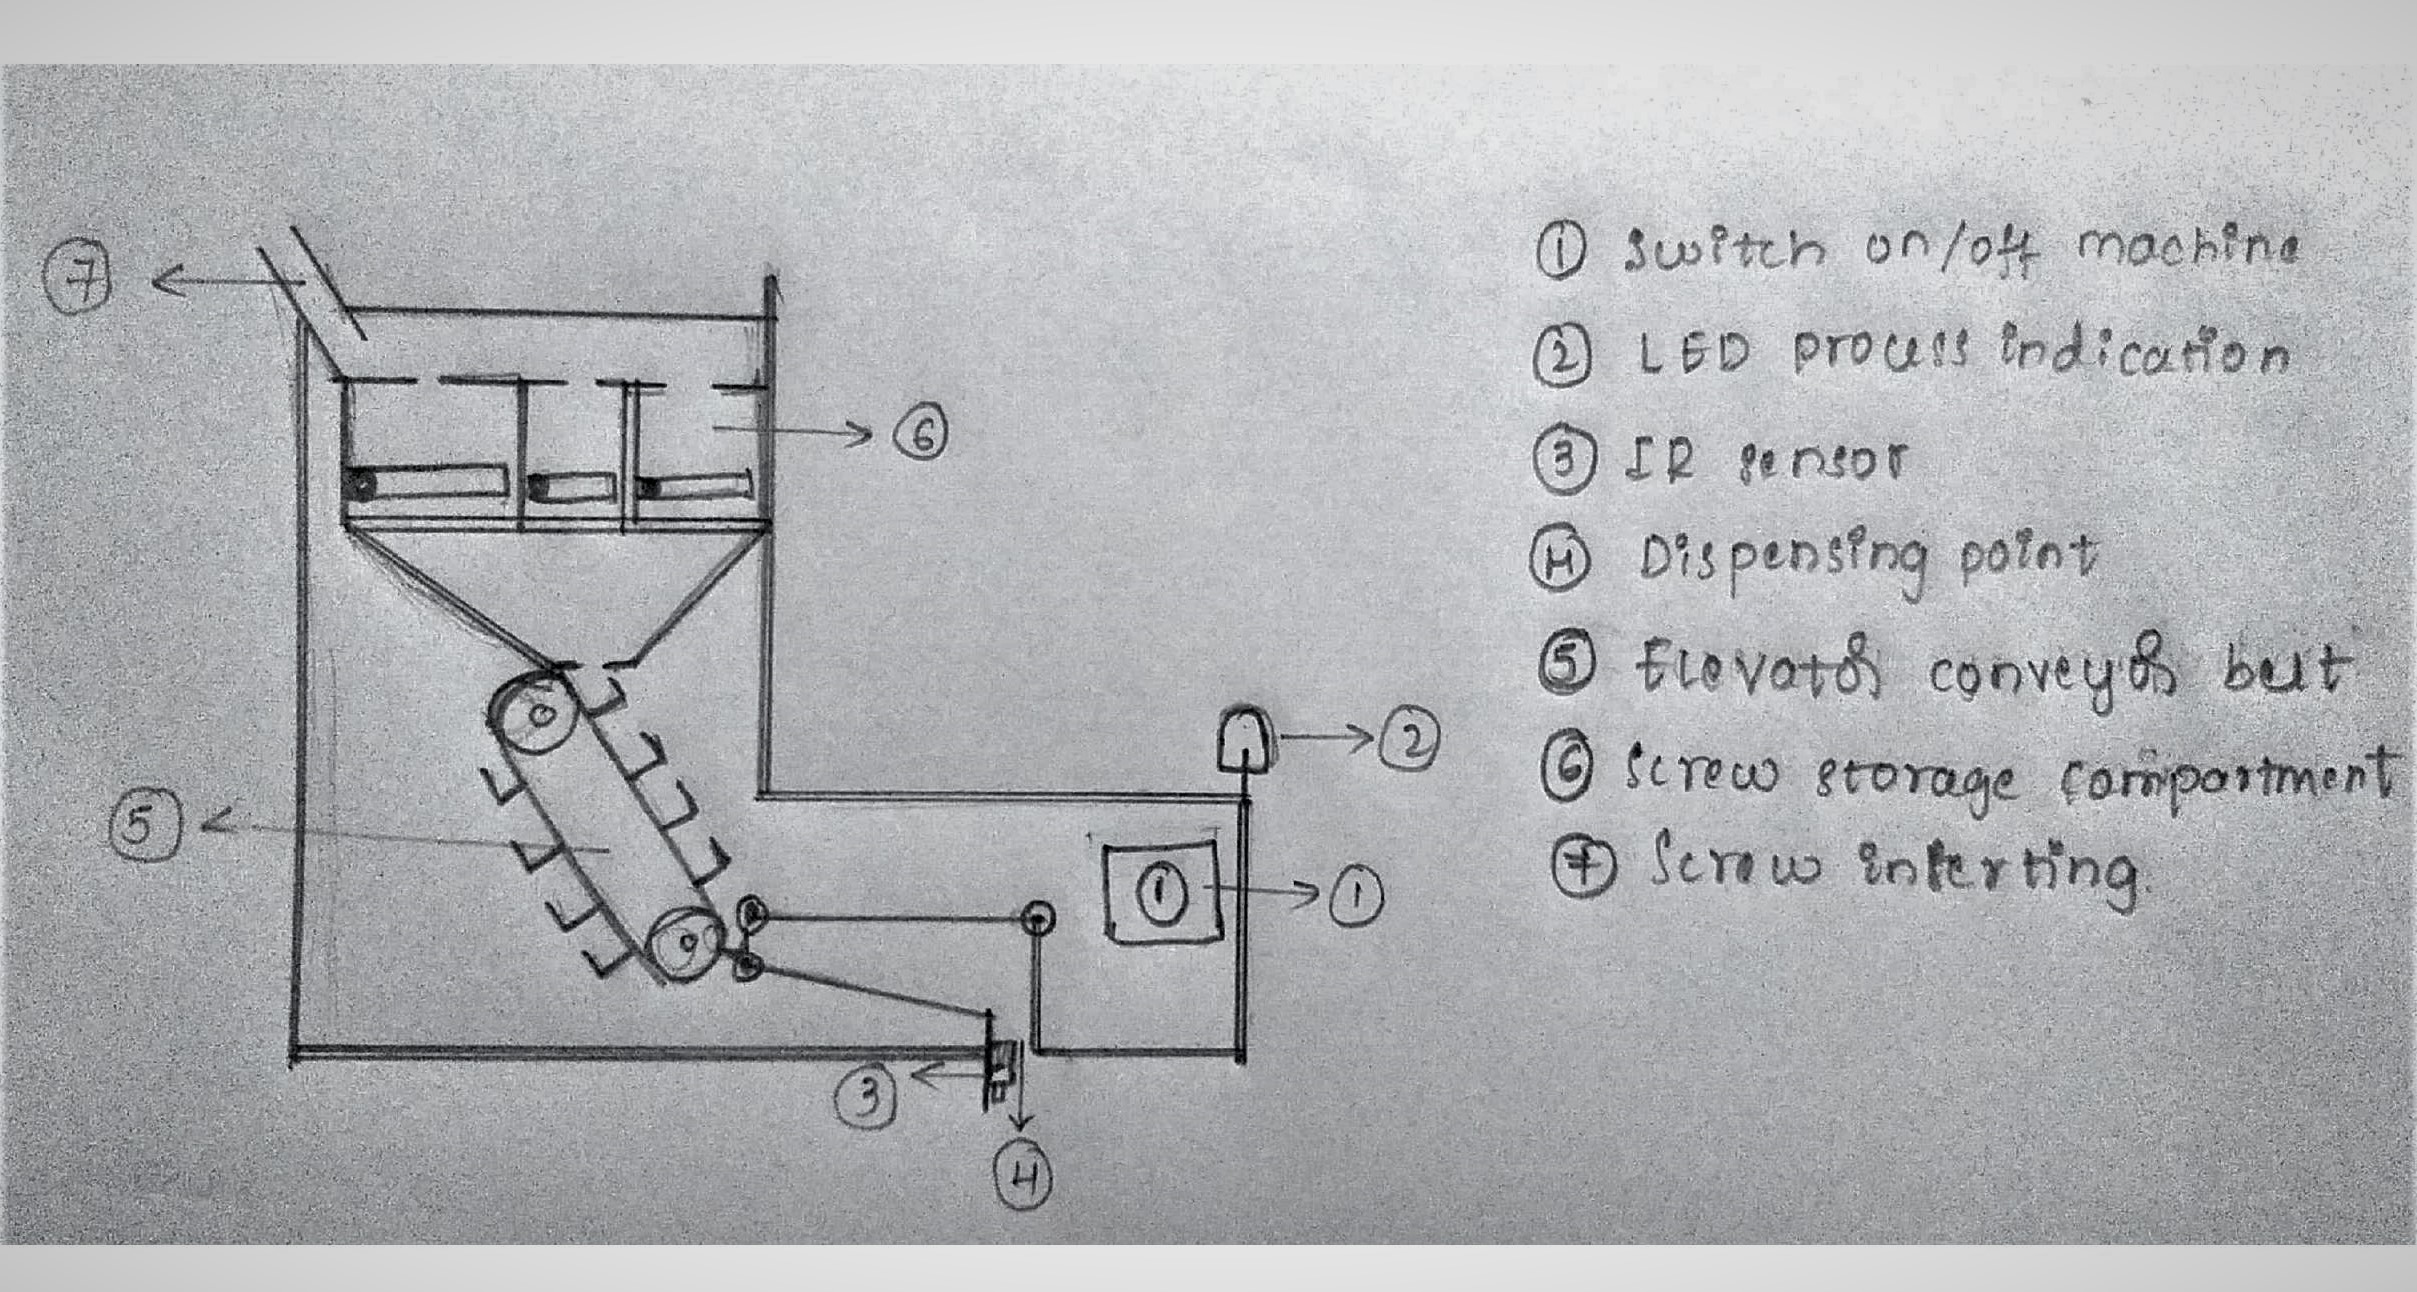 ① Switch on/off machine
② LED process indication
③ IR sensor
④ Dispensing point
⑤ Elevator conveyor belt
⑥ Screw storage compartment
⑦ Screw inserting.
⑦
⑥
⑤
②
①
①
③
④